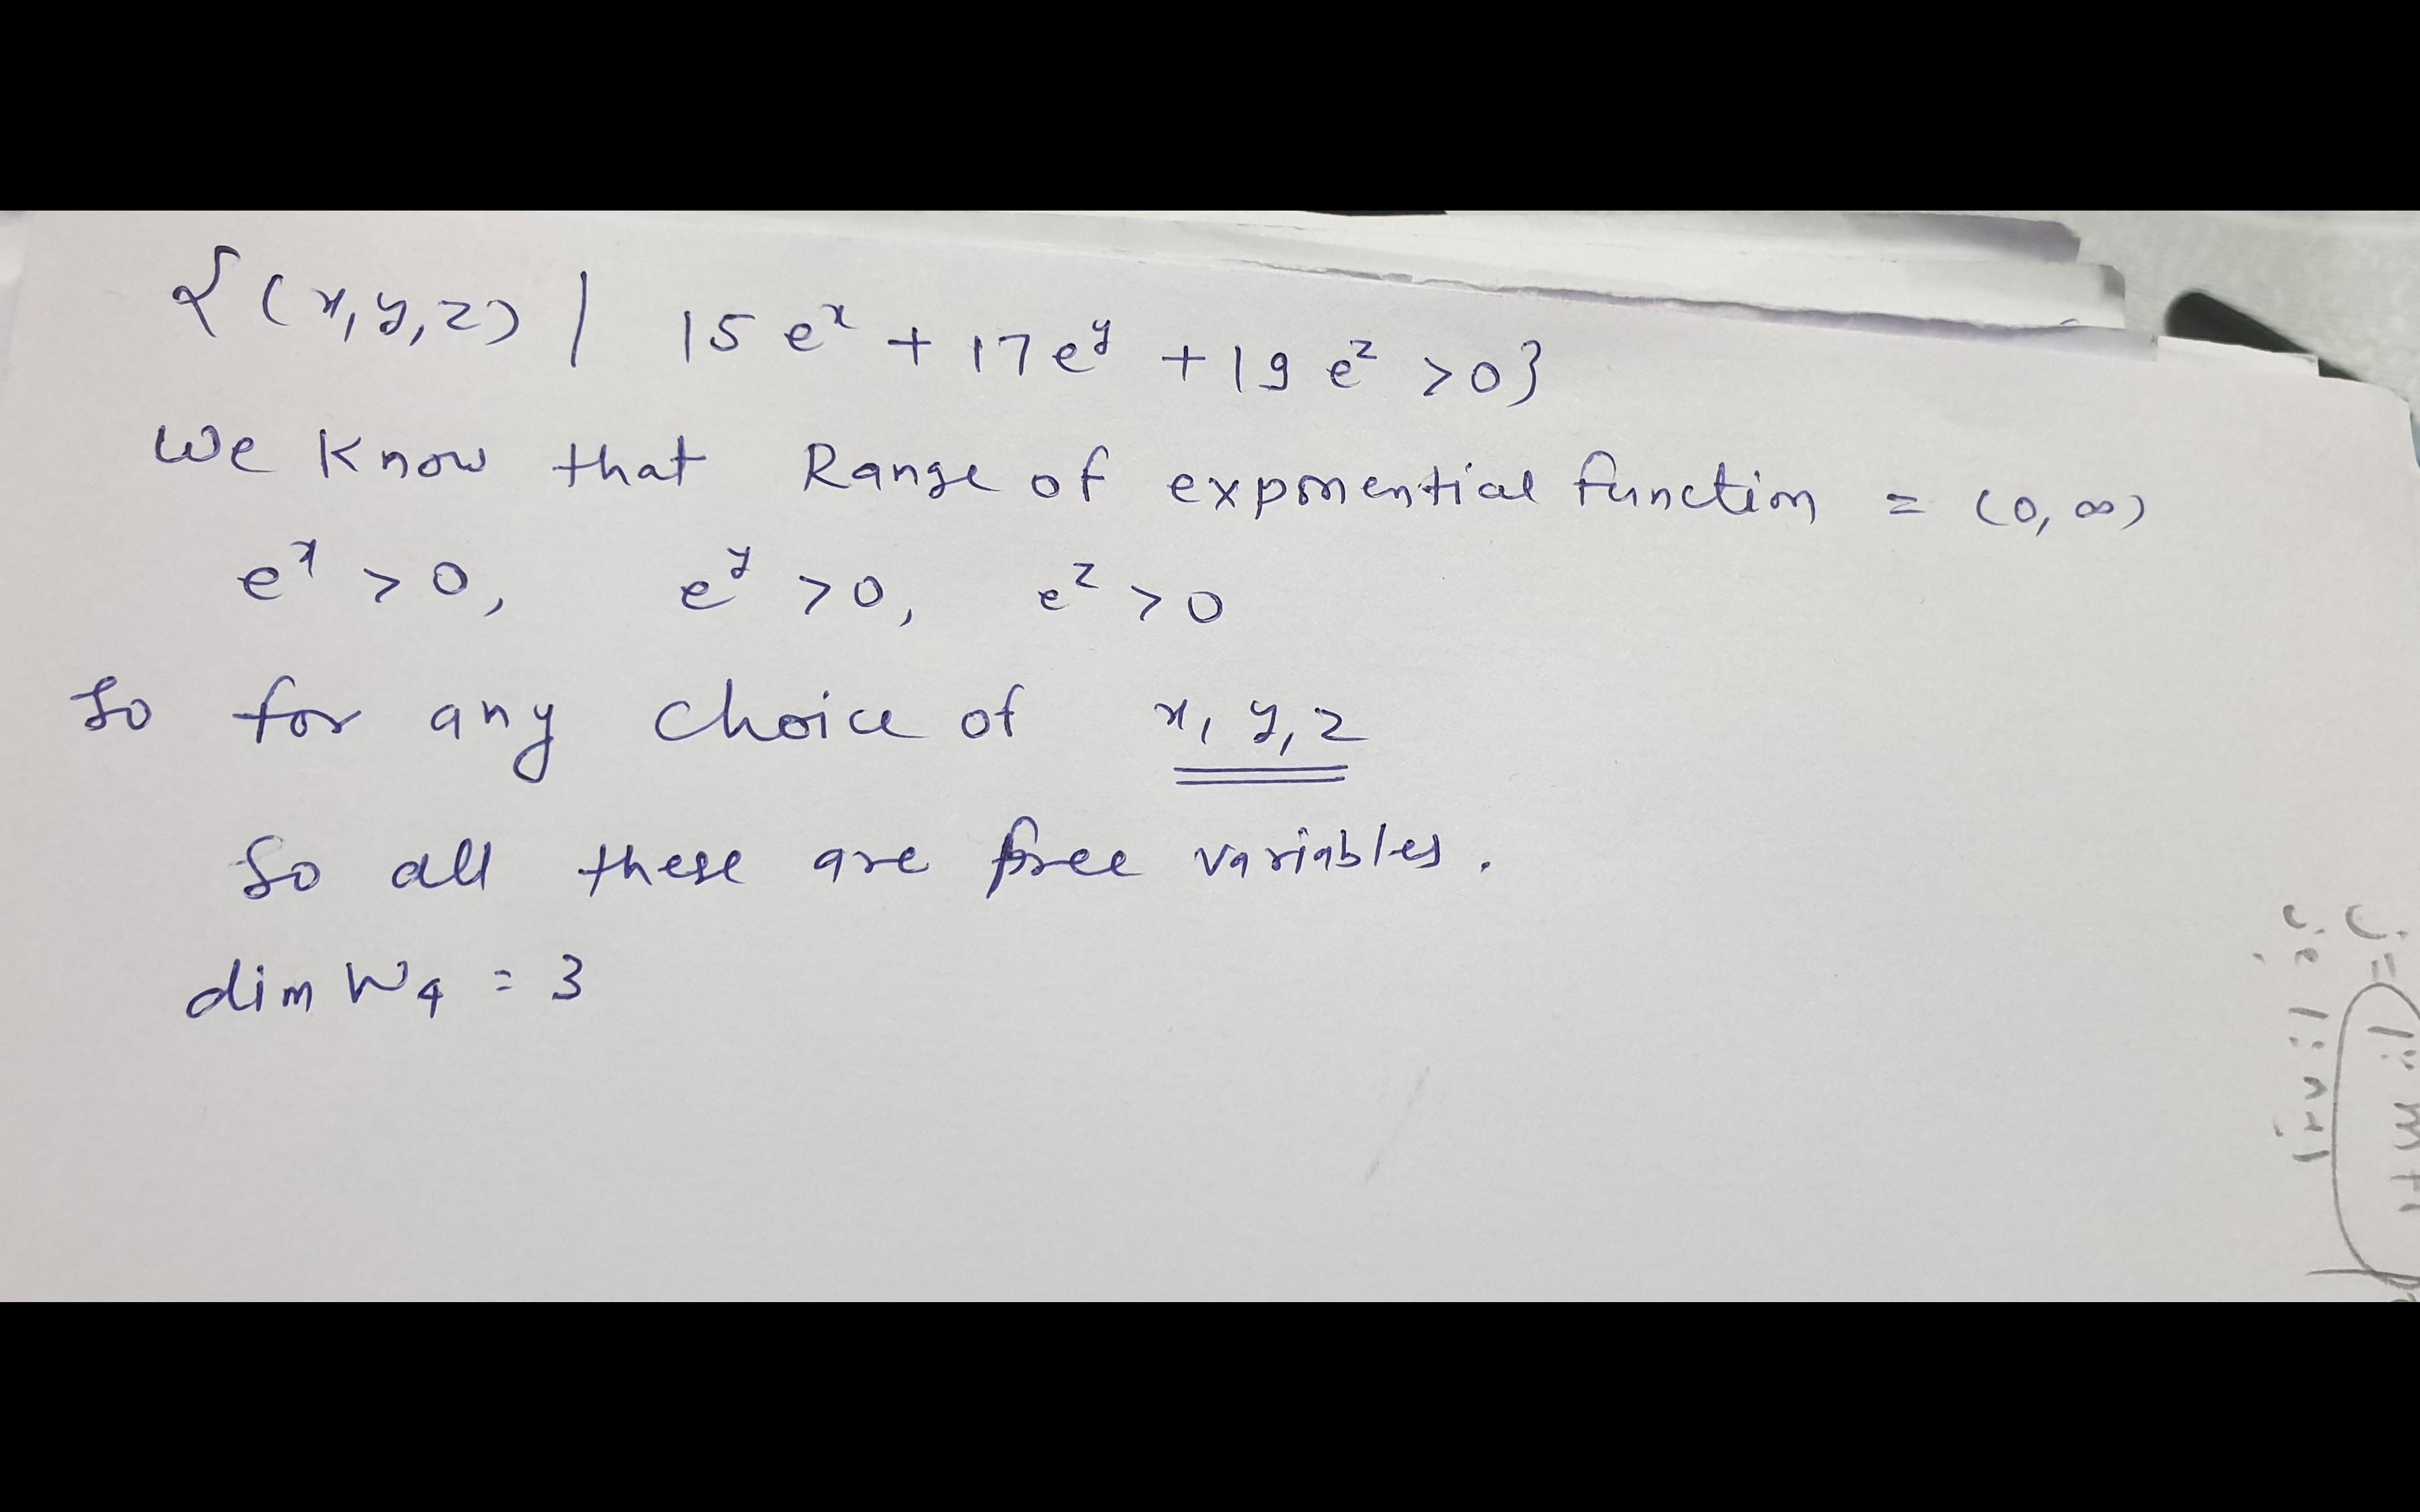 {(x,y,z) | 15 e^x + 17 e^y + 19 e^z > 0}
We Know that Range of exponential function = (0, ∞)
e^x > 0, e^y > 0, e^z > 0
So for any choice of x, y, z
So all these are free variables.
dim W₄ = 3